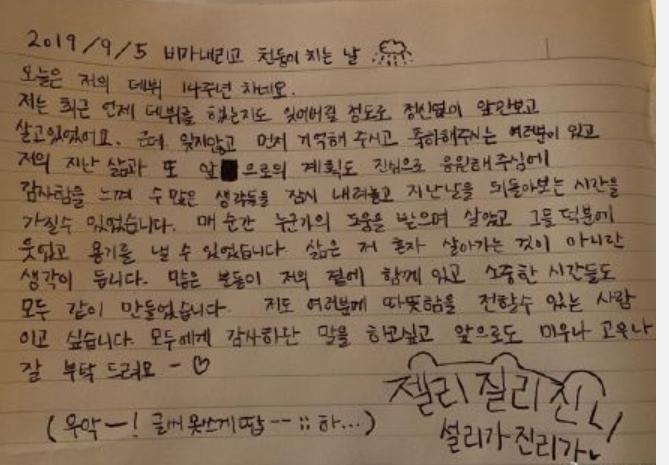 2019/9/5 비가내리고 천둥이 치는 날
오늘은 저의 데뷔 14주년 차네요.
저는 최근 언제 데뷔를 했는지도 잊어버릴 정도로 정신없이 앞만보고
살고있었어요. 근데 잊지않고 먼저 기억해 주시고 축하해주시는 여러분이 있고
저의 지난 삶과 또 앞으로의 계획도 진심으로 응원해 주심에
감사함을 느껴 수많은 생각들을 잠시 내려놓고 지난날을 뒤돌아보는 시간을
가질수 있었습니다. 매 순간 누군가의 도움을 받으며 살았고 그들 덕분에
웃었고 용기를 낼 수 있었습니다. 삶은 저 혼자 살아가는 것이 아니란
생각이 듭니다. 많은 분들이 저의 곁에 함께 있고 소중한 시간들도
모두 같이 만들었습니다. 저도 여러분께 따뜻함을 전할수 있는 사람
이고 싶습니다. 모두에게 감사하단 말을 하고싶고 앞으로도 미우나 고우나
잘 부탁 드려요 - ♡
젤리 질리 진니
설리가 진리가
(우악ㅡ! 글씨 못쓰게땁--;; 하...)